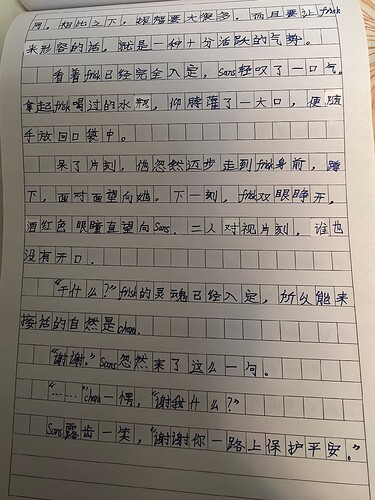 同，相比之下，振幅要大很多，而且要让frisk
来形容的话，就是一种十分活跃的气势。
看着frisk已经完全入定，Sans轻叹了一口气。
拿起frisk喝过的水瓶，仰脖灌了一大口，便随
手放回口袋中。
呆了片刻，他忽然迈步走到frisk身前，蹲
下，面对面望向她。下一刻，frisk双眼睁开，
酒红色眼瞳直望向Sans。二人对视片刻，谁也
没有开口。
“干什么？”frisk的灵魂已经入定，所以能来
接话的自然是chara。
“谢谢。”Sans忽然来了这么一句。
“……”chara一愣，“谢我什么？”
Sans露齿一笑，“谢谢你一路上保护平安。”